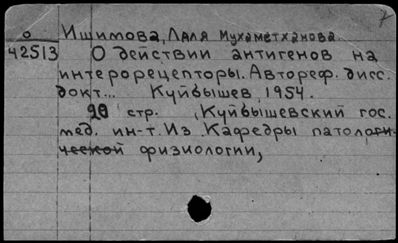 7
о Ишимова, Ляля Мухаметханова.
42513 О действии антигенов на
интерорецепторы. Автореф. дисс.
докт... Куйбышев, 1954.
20 стр. , Куйбышевский гос.
мед. ин-т. Из Кафедры патологи-
ческой физиологии,